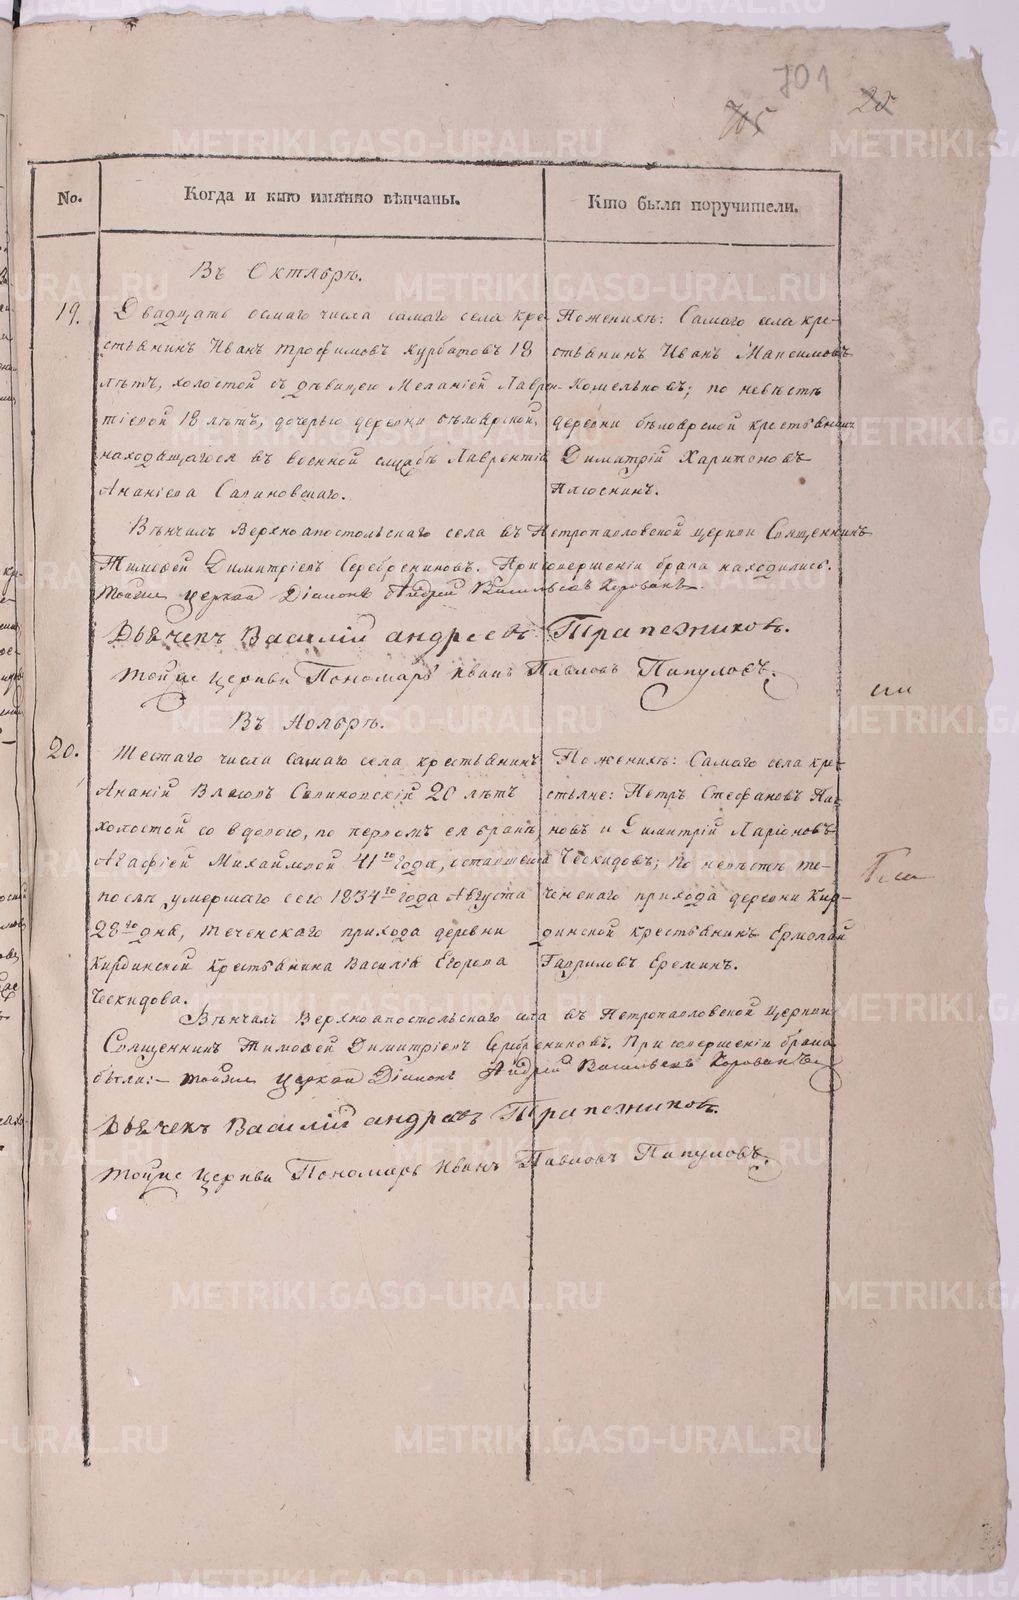 701
705
25
No.
Когда и кто имянно вѣнчаны.
Кто были поручители.
Въ Октябрѣ.
19.
Двадцать осмаго числа самаго села кре
стьянинъ Иванъ Трофимовъ Курбатовъ 18
лѣтъ, холостой съ дѣвицею Меланіей Лаврен-
тіевой 18 лѣтъ, дочерью деревни бѣлоярской,
находящагося въ военной службѣ Лаврентія
Ананіева Салиновскаго.
По женихѣ: Самаго села кре-
стьянинъ Иванъ Максимовъ
Комельковъ; по невѣстѣ
деревни бѣлоярской крестьянинъ
Димитрій Харитоновъ
Плюснинъ.
Вѣнчалъ Верхноапостольскаго села въ Петропавловской церкви Священникъ
Тимоѳей Димитріевъ Серебрениковъ. При совершеніи брака находились:
тойже церкви Діаконъ Андрей Васильевъ
Дьячекъ Василій андреевъ Трапезниковъ.
тойже церкви Пономарь иванъ Павловъ Папуловъ.
Въ Ноябрѣ.
20.
Шестаго числа самаго села крестьянинъ
Ананій Власовъ Салиновскій 20 лѣтъ
холостой со вдовою, по первомъ ея бракѣ,
Агафіей Михайловой 41го года, оставшейся
послѣ умершаго сего 1834го года Августа
28го дня, теченскаго прихода деревни
Кирдинской крестьянина Василія Егорова
Ческидова.
По женихѣ: Самаго села кре-
стьяне: Петръ Стефановъ
и Димитрій Ларіоновъ
Ческидовъ; По невѣстѣ те-
ченскаго прихода деревни Кир-
динской крестьянинъ Ермолай
Гавриловъ Ереминъ.
Вѣнчалъ Верхноапостольскаго села въ Петропавловской церкви
Священникъ Тимоѳей Димитріевъ Серебрениковъ. При совершеніи брака
были:- тойже церкви Діаконъ Андрей Васильевъ
Дьячекъ Василій андреевъ Трапезниковъ.
тойже церкви Пономарь Иванъ Павловъ Папуловъ.
METRIKI.GASO-URAL.RU